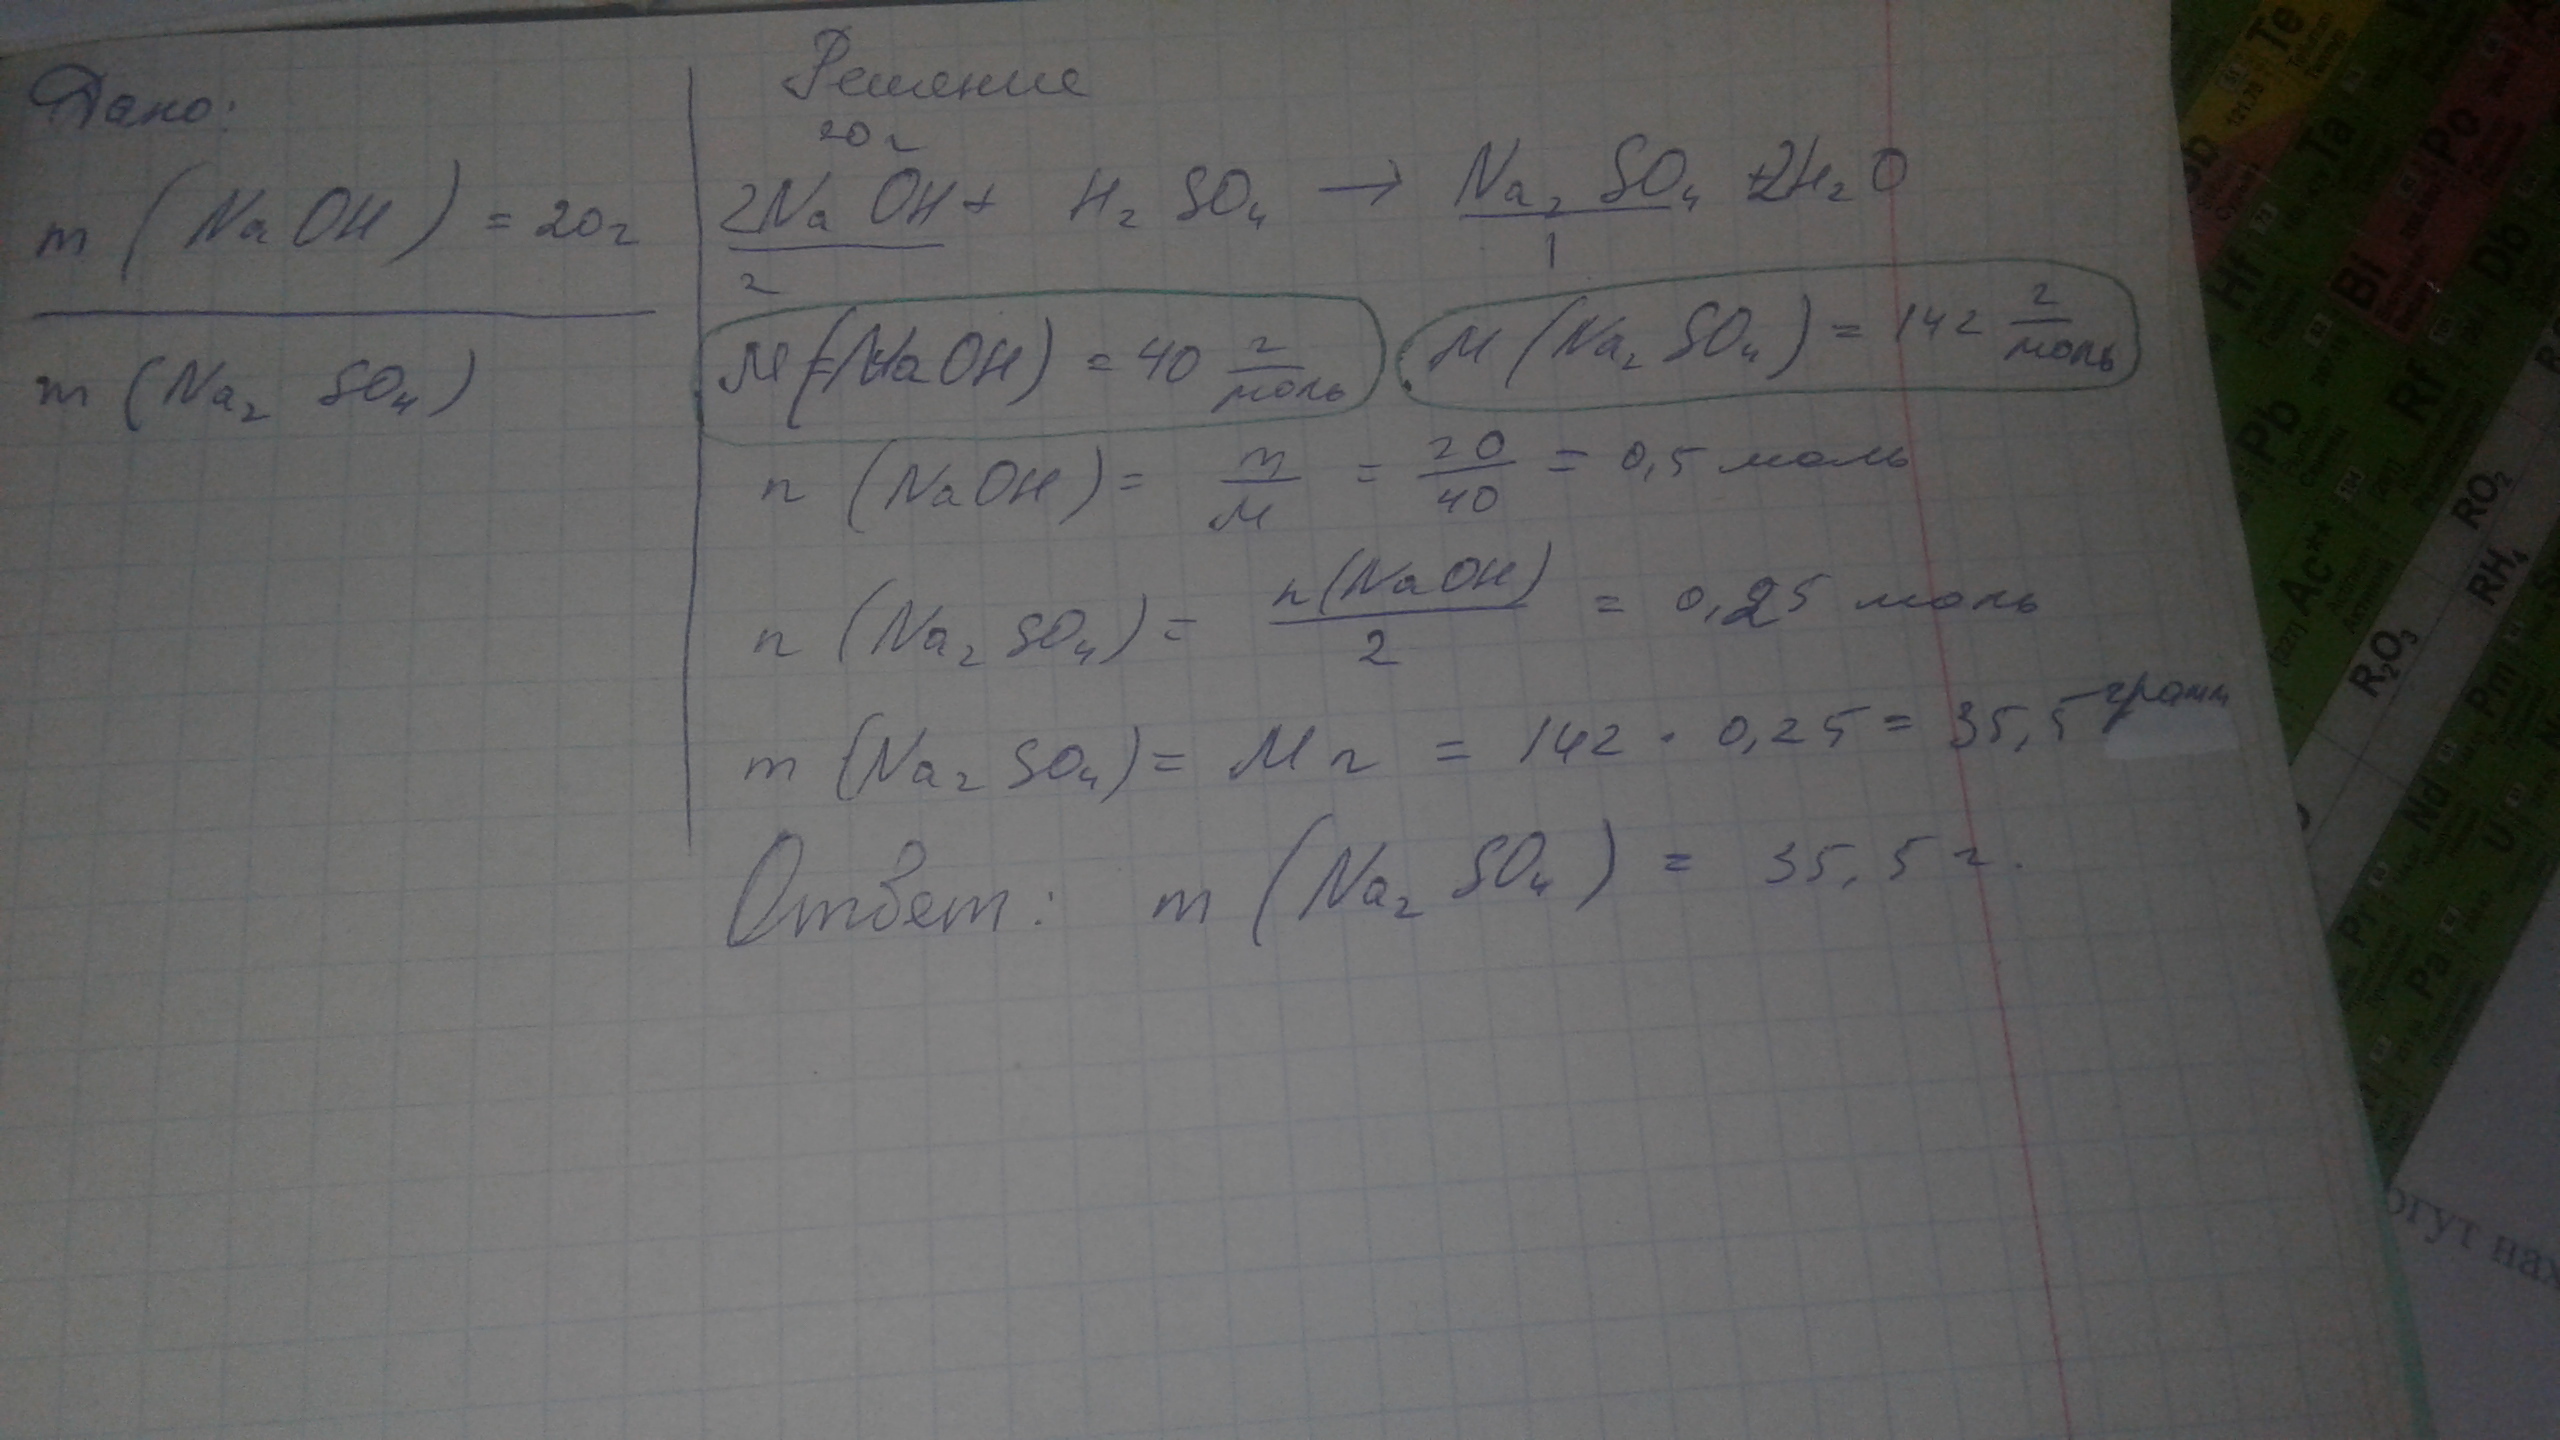 Дано:
m (NaOH) = 20г
m (Na₂SO₄)
Решение
20г
2NaOH + H₂SO₄ → Na₂SO₄ + 2H₂O
2 1
M (NaOH) = 40 г/моль M (Na₂SO₄) = 142 г/моль
n (NaOH) = m/M = 20/40 = 0,5 моль
n (Na₂SO₄) = n(NaOH)/2 = 0,25 моль
m (Na₂SO₄) = M n = 142 · 0,25 = 35,5 грамм
Ответ: m (Na₂SO₄) = 35,5 г.
Te
Ta
Po
Hf
Bi
Db
Pb
Rf
Ac**
RO₂
RH₄
R₂O₃
Pm
Nd
U
Pr
Pa
огут нах